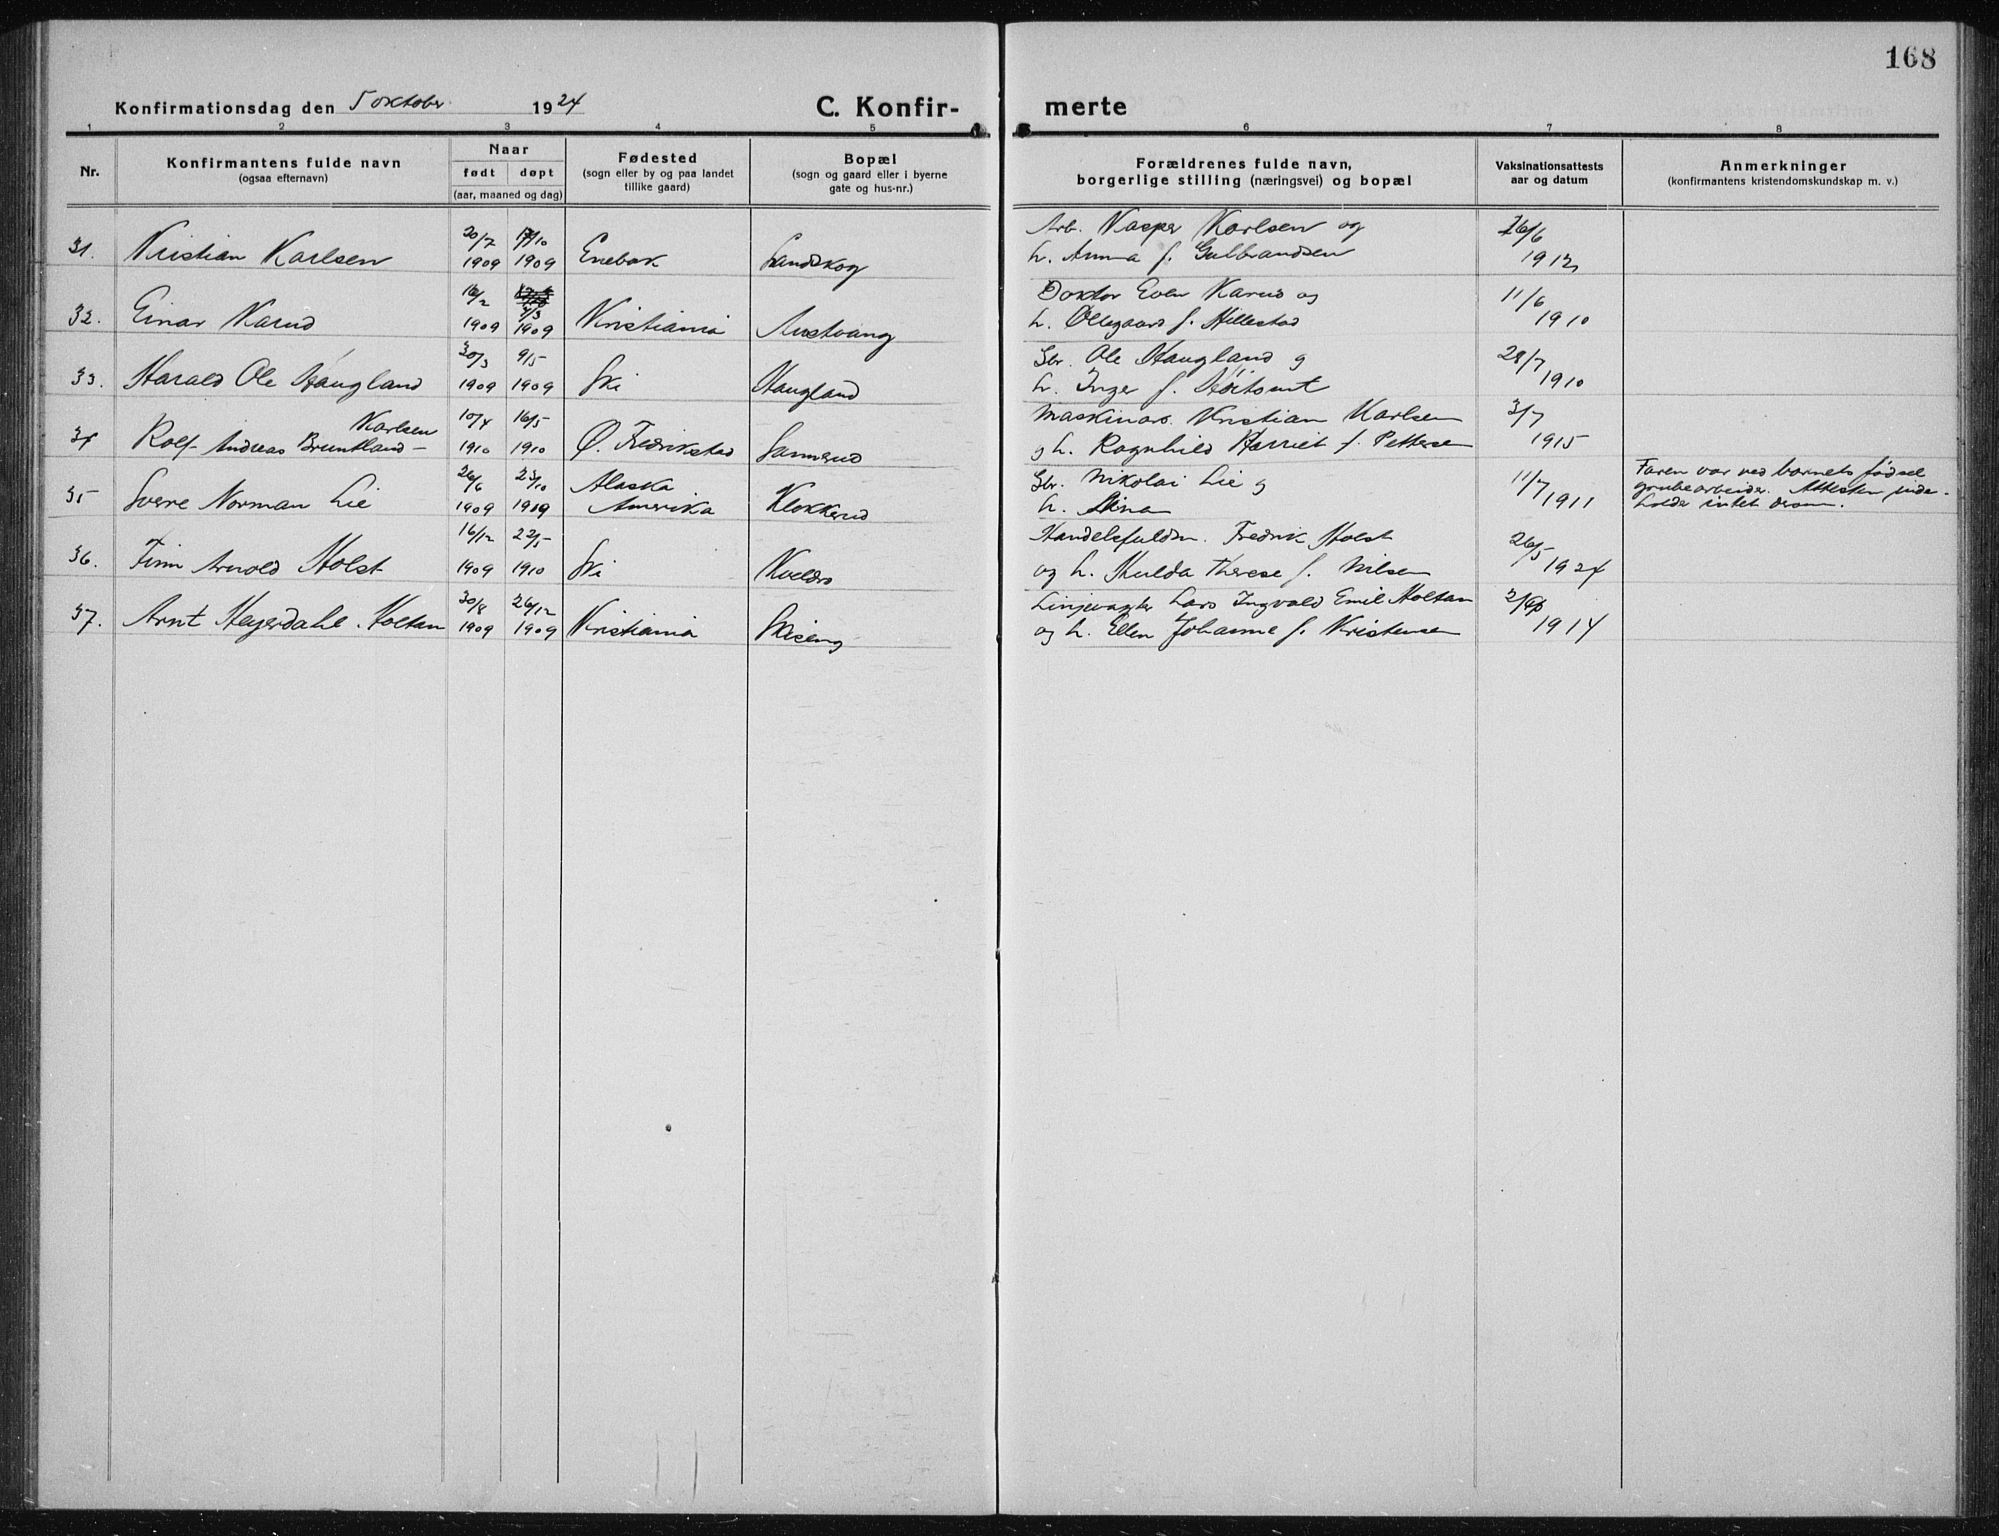 168
Konfirmationsdag den 5 oktober 1924 C. Konfir- merte
1 2 3 4 5 6 7 8
Nr. Konfirmantens fulde navn (ogsaa efternavn) Naar født døpt (aar, maaned og dag) Fødested (sogn eller by og paa landet tillike gaard) Bopæl (sogn og gaard eller i byerne gate og hus-nr.) Forældrenes fulde navn, borgerlige stilling (næringsvei) og bopæl Vaksinationsattests aar og datum Anmerkninger (konfirmantens kristendomskundskap m. v.)
20/7 /10 Arb. Kasper Karlsen og 26/6
31. Kristian Karlsen 1909 1909 Enebak Landskog h. Anna f. Gulbrandsen 1912
16/2 Doktor Even Karud og 11/6
7/3
32. Einar Karud 1909 1909 Kristiania Austvang h. Ollegaard f. Hillestad 1910
30/3 9/5 Gbr. Ole Haugland og 28/7
33. Harald Ole Haugland 1909 1909 Ski Haugland h. Inger f. 1910
Karlsen 10/4 16/5 Maskinarb. Kristian Karlsen 3/7
34 Rolf Andreas Bruntland - 1910 1910 Ø. Fredrikstad Sannerud og h. Ragnhild Harriet f. Pettersen 1915
26/6 23/10 Alaska Gbr. Nikolai Lie og 11/7 Faren var ved barnets fødsel
35 Sverre Norman Lie 1909 1909 Amerika Klokkerud h. Lina 1911 grubearbeider. Attesten inde-
holder intet derom.
16/12 22/5 Handelsfuldm. Fredrik Holst 26/5
36. Finn Arnold Holst 1909 1910 Ski Kveldro og h. Hulda Therese f. Nilsen 1924
30/8 26/12 Linjevagter Lars Ingvald Emil Holtan
37. Arnt Heyerdahl Holtan 1909 1909 Kristiania Skiseng og h. Ellen Johanne f. Kristensen 1914